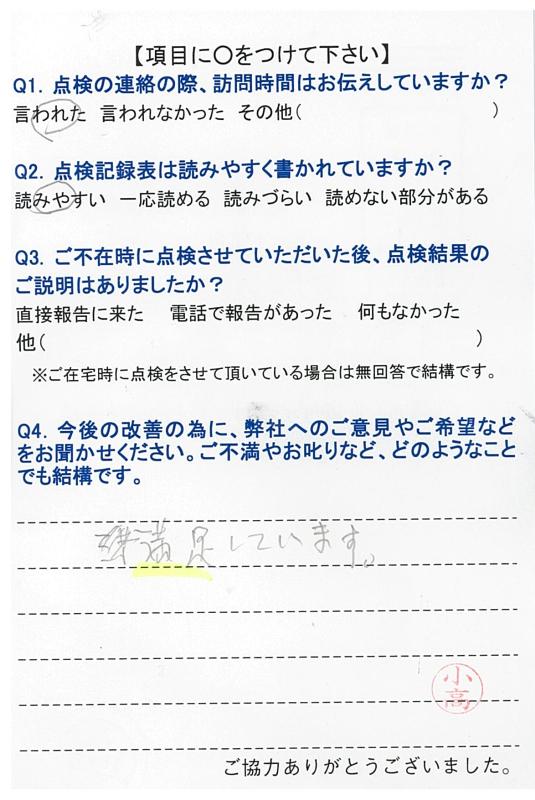 【項目に〇をつけて下さい】
Q1. 点検の連絡の際、訪問時間はお伝えしていますか?
言われた 言われなかった その他( )
Q2. 点検記録表は読みやすく書かれていますか?
読みやすい 一応読める 読みづらい 読めない部分がある
Q3. ご不在時に点検させていただいた後、点検結果の
ご説明はありましたか?
直接報告に来た 電話で報告があった 何もなかった
他( )
※ご在宅時に点検をさせて頂いている場合は無回答で結構です。
Q4. 今後の改善の為に、弊社へのご意見やご希望など
をお聞かせください。ご不満やお叱りなど、どのようなこと
でも結構です。
満足しています。
小高
ご協力ありがとうございました。